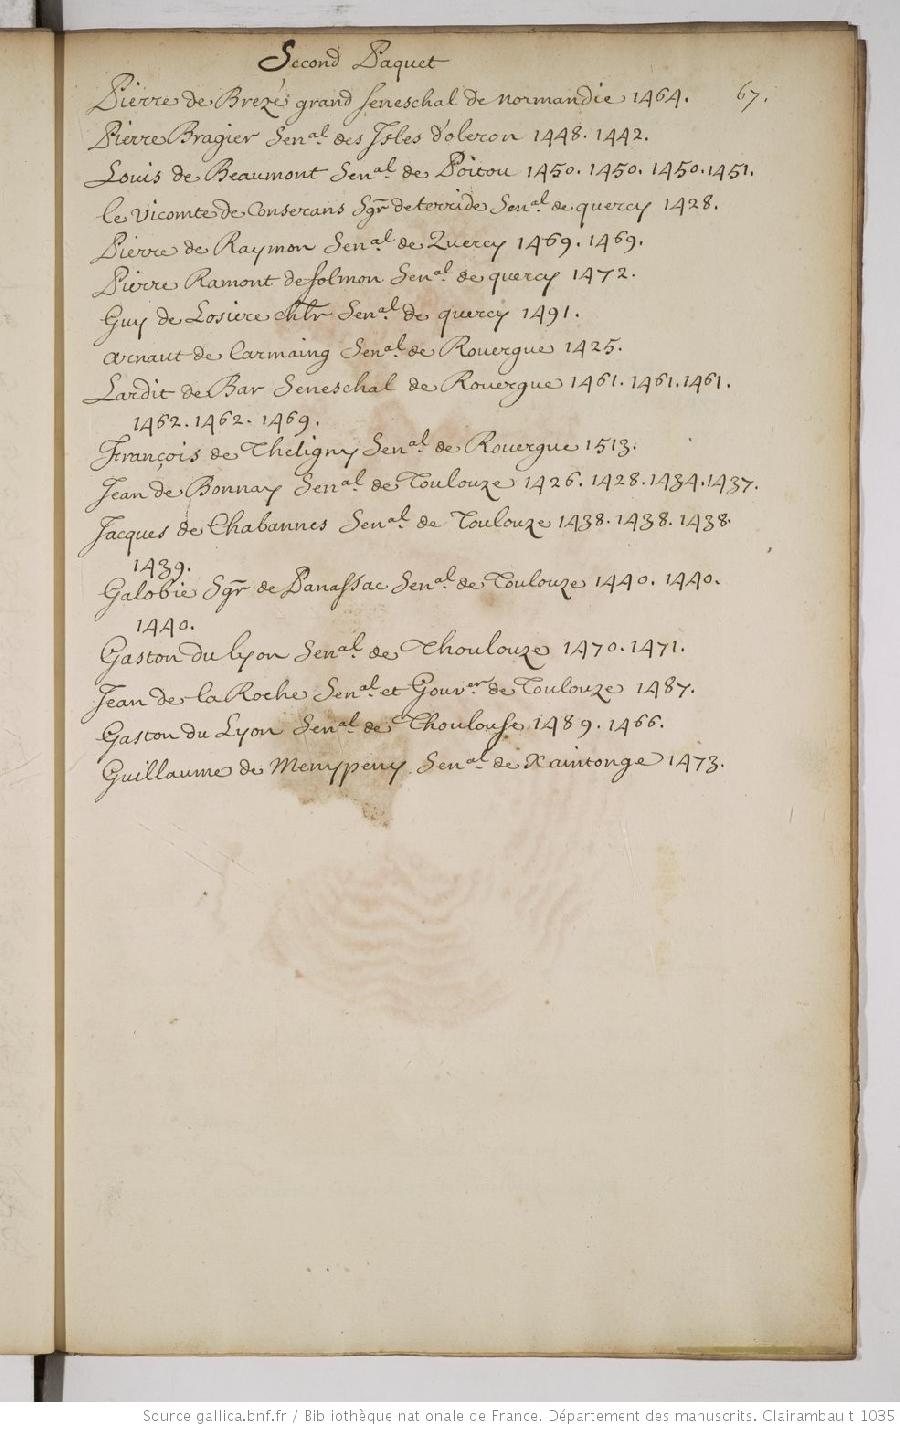 Second Paquet
Pierre de Brezé grand seneschal de normandie 1464. 67.
Pierre Bragier Sen.al des Isles d'oleron 1448. 1442.
Louis de Beaumont Sen.al de Poitou 1450. 1450. 1450. 1451.
le vicomte de Conserans Sgr de terride Sen.al de quercy 1428.
Pierre de Raymon Sen.al de Quercy 1469. 1469.
Pierre Ramont de folmon Sen.al de quercy 1472.
Guy de Losiere chlr Sen.al de quercy 1491.
Arnaut de Carmaing Sen.al de Rouergue 1425.
Lardit de Bar Seneschal de Rouergue 1461. 1461. 1461.
1462. 1462. 1469.
François de Theligny Sen.al de Rouergue 1513.
Jean de Bonnay Sen.al de Toulouze 1426. 1428. 1434. 1437.
Jacques de Chabannes Sen.al de Toulouze 1438. 1438. 1438.
1439.
Galobie Sgr de Panassac Sen.al de Toulouze 1440. 1440.
1440.
Gaston du lyon Sen.al de Thoulouze 1470. 1471.
Jean de la Roche Sen.al et Gouv.er de Toulouze 1487.
Gaston du Lyon Sen.al de Thoulouse 1489. 1466.
Guillaume de Menypeny Sen.al de Xaintonge 1473.
Source gallica.bnf.fr / Bibliothèque nationale de France. Département des manuscrits. Clairambault 1035